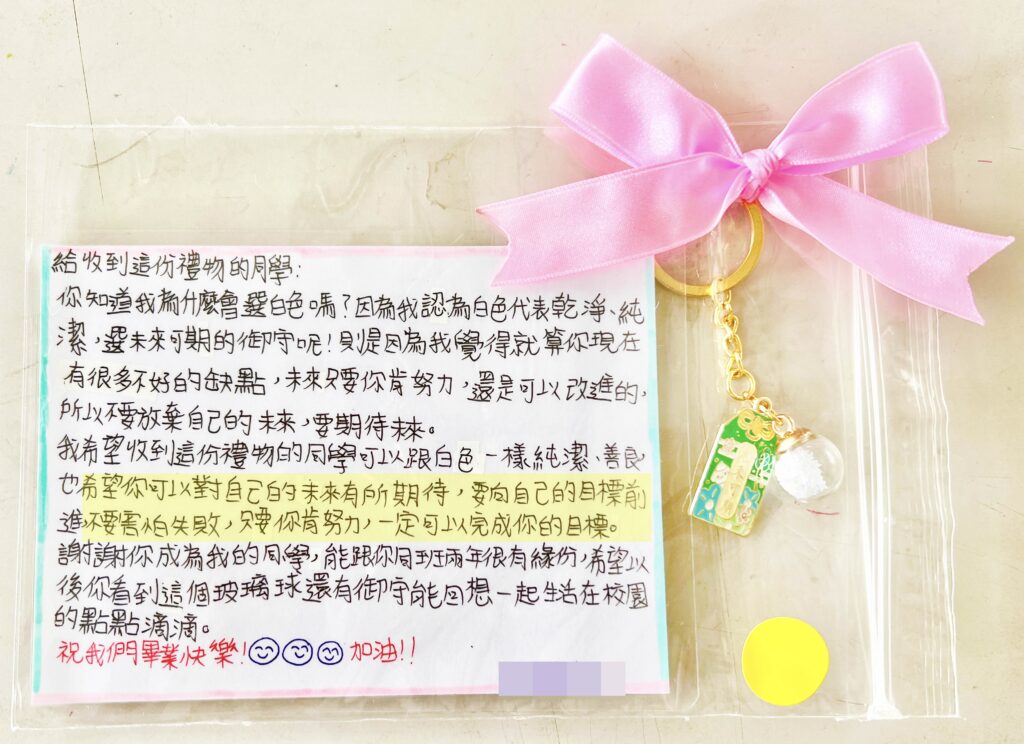 給收到這份禮物的同學:
你知道我為什麼會選白色嗎?因為我認為白色代表乾淨、純
潔,選未來可期的御守呢!則是因為我覺得就算你現在
有很多不好的缺點,未來只要你肯努力,還是可以改進的,
所以不要放棄自己的未來,要期待未來。
我希望收到這份禮物的同學可以跟白色一樣純潔、善良,
也希望你可以對自己的未來有所期待,要向自己的目標前
進不要害怕失敗,只要你肯努力,一定可以完成你的目標。
謝謝你成為我的同學,能跟你同班兩年很有緣份,希望以
後你看到這個玻璃球還有御守能回想一起生活在校園
的點點滴滴。
祝我們畢業快樂!😊😊😊加油!!